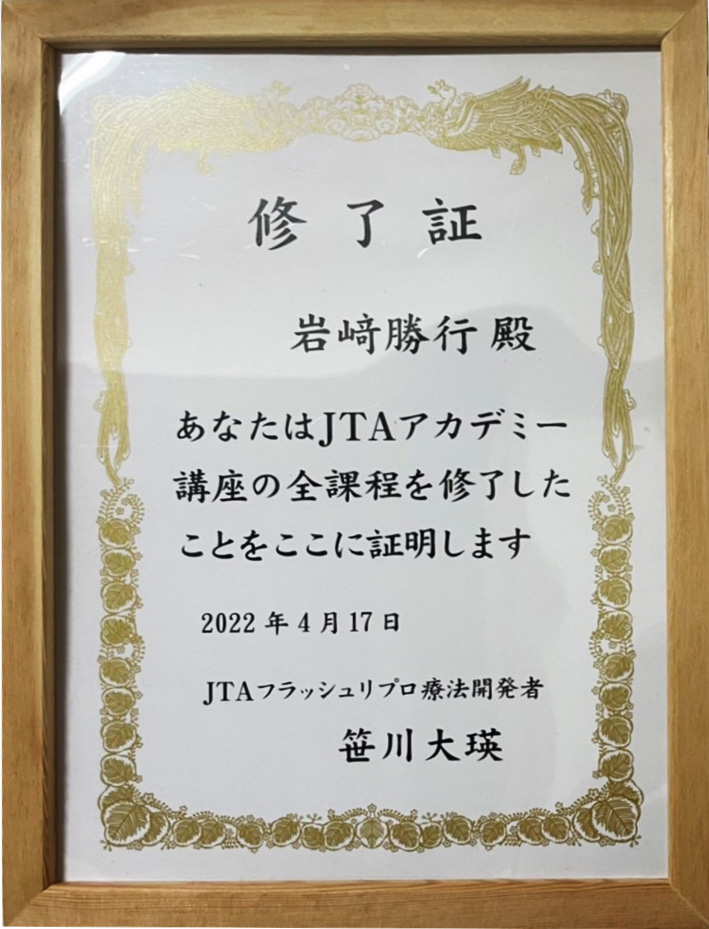 修了証
岩﨑勝行 殿
あなたはJTAアカデミー
講座の全課程を修了した
ことをここに証明します
2022 年 4 月 17 日
JTAフラッシュリプロ療法開発者
笹川大瑛